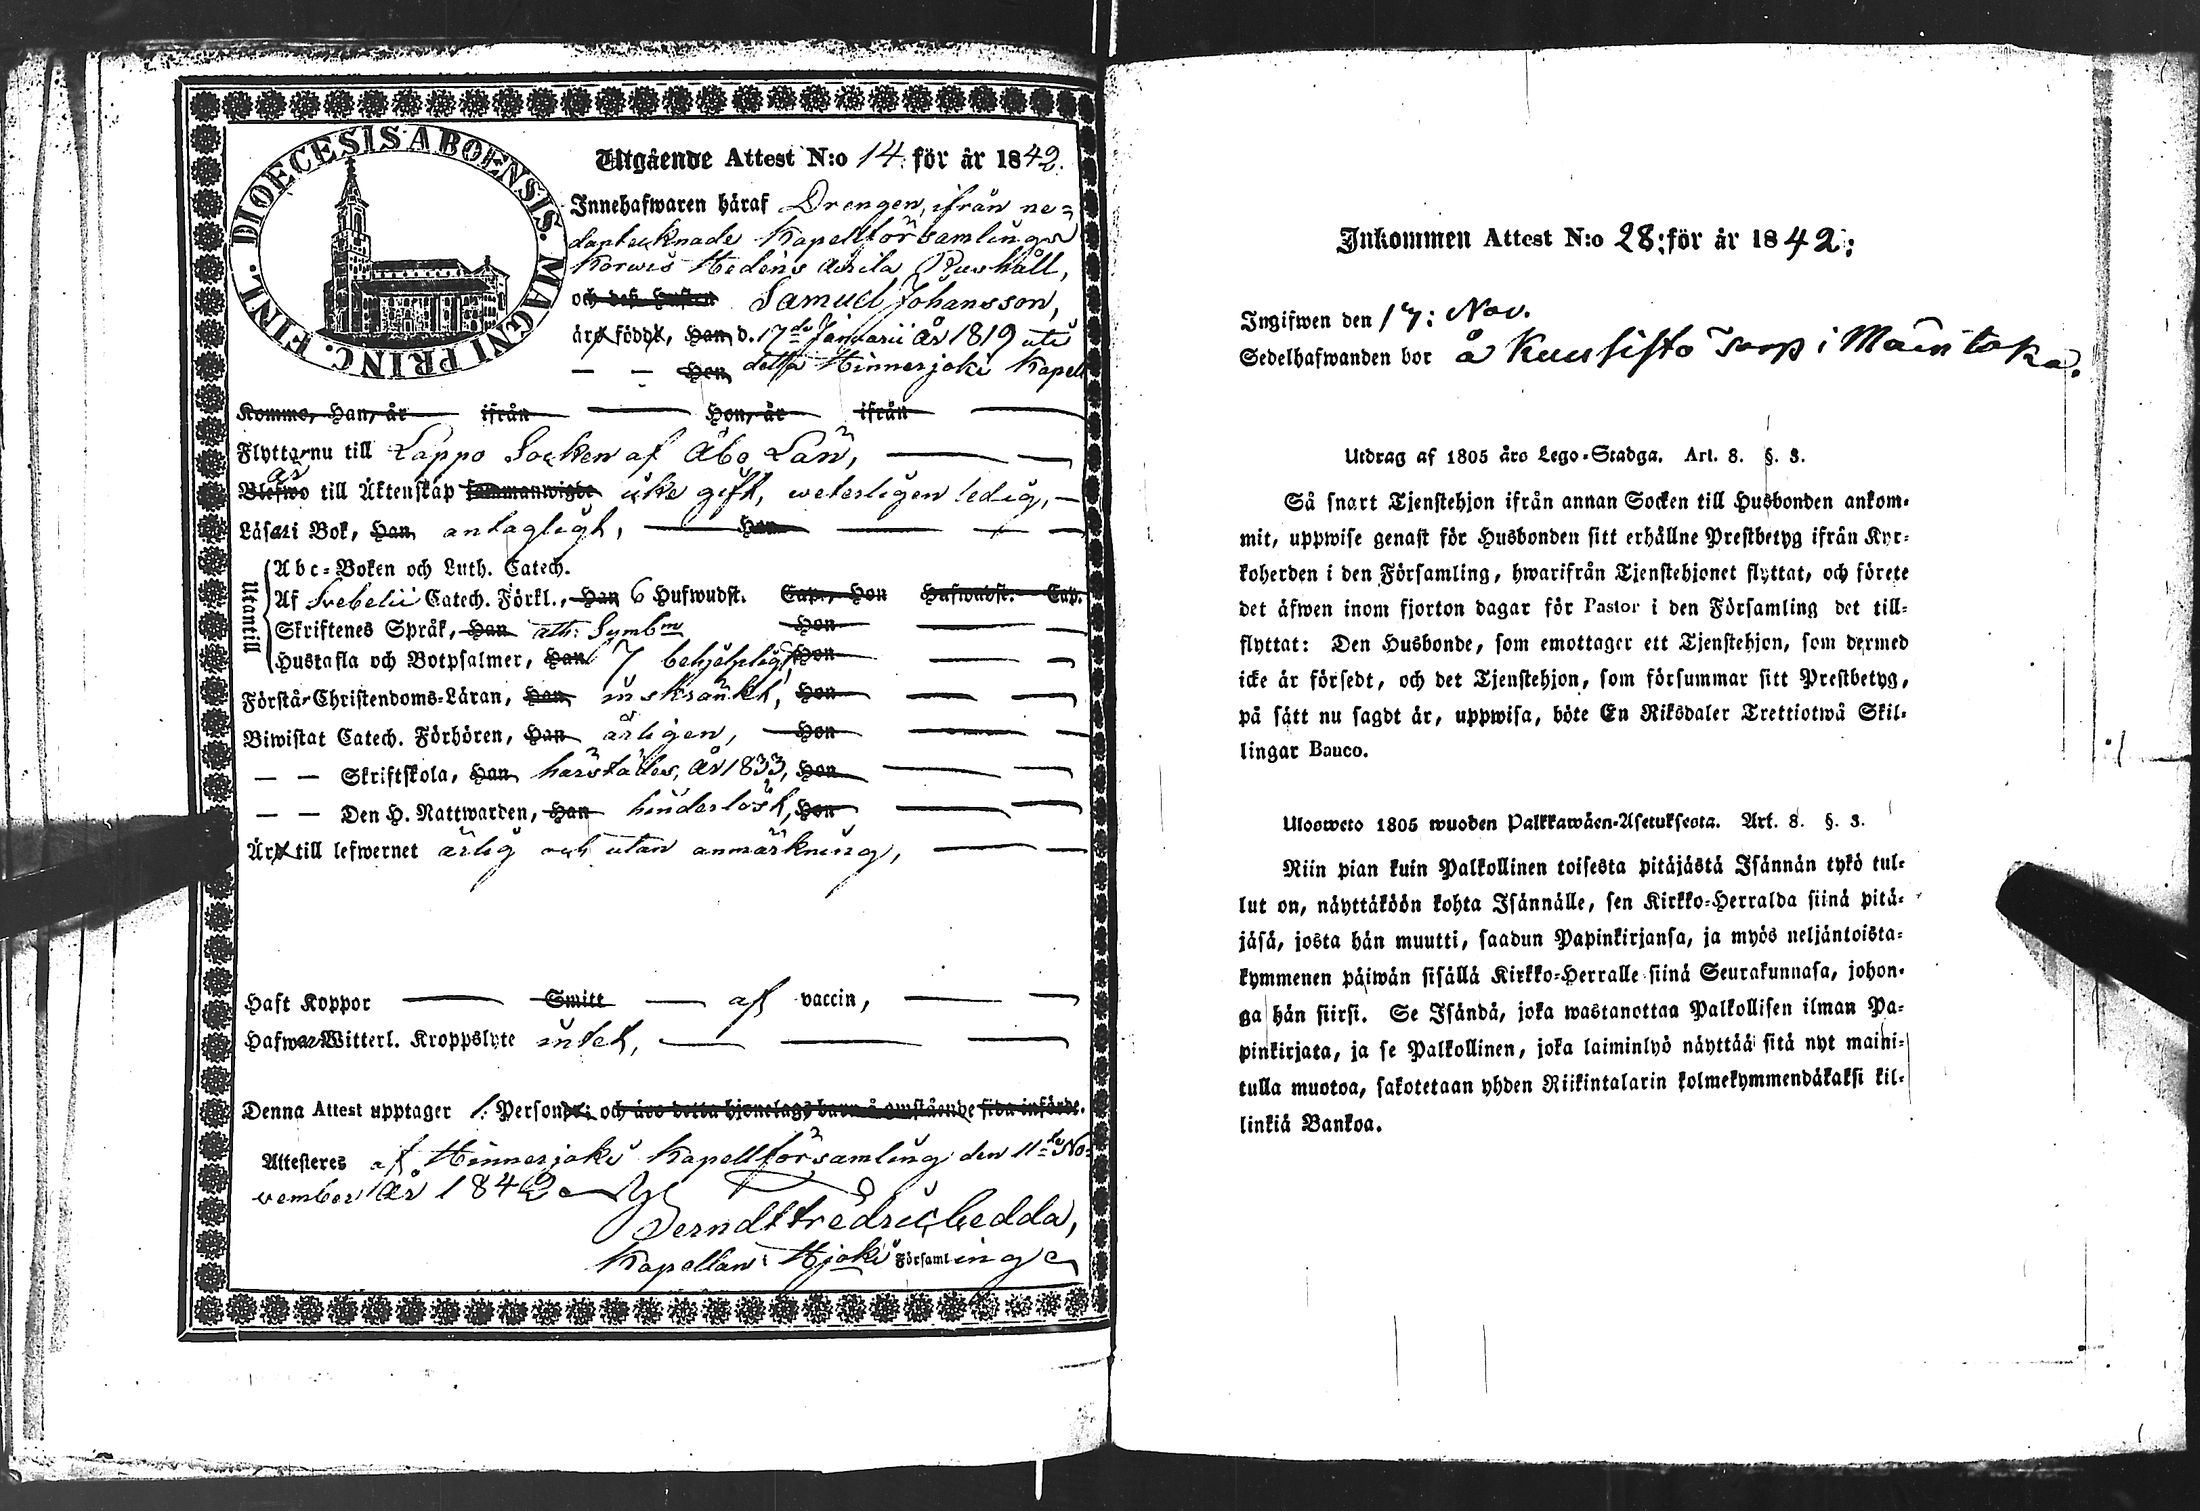 DIOECESIS ABOENSIS. MAGNI PRINC. FINL.
Utgående Attest N:o 14. för år 1842.
Innehafwaren häraf Drengen, ifrån ne=
dantecknade Kapellförsamlings
Korwis Hedens Rushåll,
och dess hustru Samuel Johansson,
äro födde, Han, d. 17de Januarii År 1819 uti
— — Hon, detta Hinnerjoki Kapell
Komme, Han, år — ifrån — Hon, år — ifrån —
Flyttar nu till Lappo Socken af Åbo Län, — —
Blefwo till Äktenskap sammanwigde icke gift, weterligen ledig, —
Läsa i Bok, Han, antagligt, — Hon — — —
Utantill
Abc-Boken och Luth. Catech.
Af Svebelii Catech. Förkl., Han 6 Hufwudst. Cap., Hon Hufwudst. Cap.
Skriftenes Språk, Han ath: Symbm Hon — —
Hustafla och Botpsalmer, Han 7 behjelplig, Hon — —
Förstå Christendoms-Läran, Han, inskränkt, Hon — —
Biwistat Catech. Förhören, Han årligen, Hon — —
— — Skriftskola, Han härstädes, År 1833, Hon — —
— — Den H. Nattwarden, Han hinderlöst, Hon — —
Äro till lefwernet ärlig och utan anmärkning, — —
Haft Koppor — Smitt — af vaccin, — —
Hafwa Witterl. Kroppslyte intet, — — —
Denna Attest upptager 1. Person; och äro detta hjonelags barn å omstående sida införde.
Attesteres af Hinnerjoki Kapellförsamling den 11te No=
vember År 1842.
Berndt Fredric Cedda,
Kapellan i Hjoki Församlinge
Inkommen Attest N:o 28: för år 1842:
Ingifwen den 17: Nov.
Sedelhafwanden bor å Kuusisto Torp i Mäntaka.
Utdrag af 1805 års Lego-Stadga. Art. 8. §. 3.
Så snart Tjenstehjon ifrån annan Socken till Husbonden ankom-
mit, uppwise genast för Husbonden sitt erhållne Prestbetyg ifrån Kyr-
koherden i den Församling, hwarifrån Tjenstehjonet flyttat, och förete
det äfwen inom fjorton dagar för Pastor i den Församling det till-
flyttat: Den Husbonde, som emottager ett Tjenstehjon, som dermed
icke är försedt, och det Tjenstehjon, som försummar sitt Prestbetyg,
på sätt nu sagdt är, uppwisa, böte En Riksdaler Trettiotwå Skil-
lingar Banco.
Ulosweto 1805 wuoden Palkkawäen-Asetuksesta. Art. 8. §. 3.
Niin pian kuin Palkollinen toisesta pitäjästä Isännän tykö tul-
lut on, näyttäköön kohta Isännälle, sen Kirkko-Herralda siinä pitä-
jäsä, josta hän muutti, saadun Papinkirjansa, ja myös neljäntoista-
kymmenen päiwän sisällä Kirkko-Herralle siinä Seurakunnasa, johon-
ga hän siirsi. Se Isändä, joka wastanottaa Palkollisen ilman Pa-
pinkirjata, ja se Palkollinen, joka laiminlyö näyttää sitä nyt maini-
tulla muotoa, sakotetaan yhden Riikintalarin kolmekymmendäkaksi kil-
linkiä Bankoa.